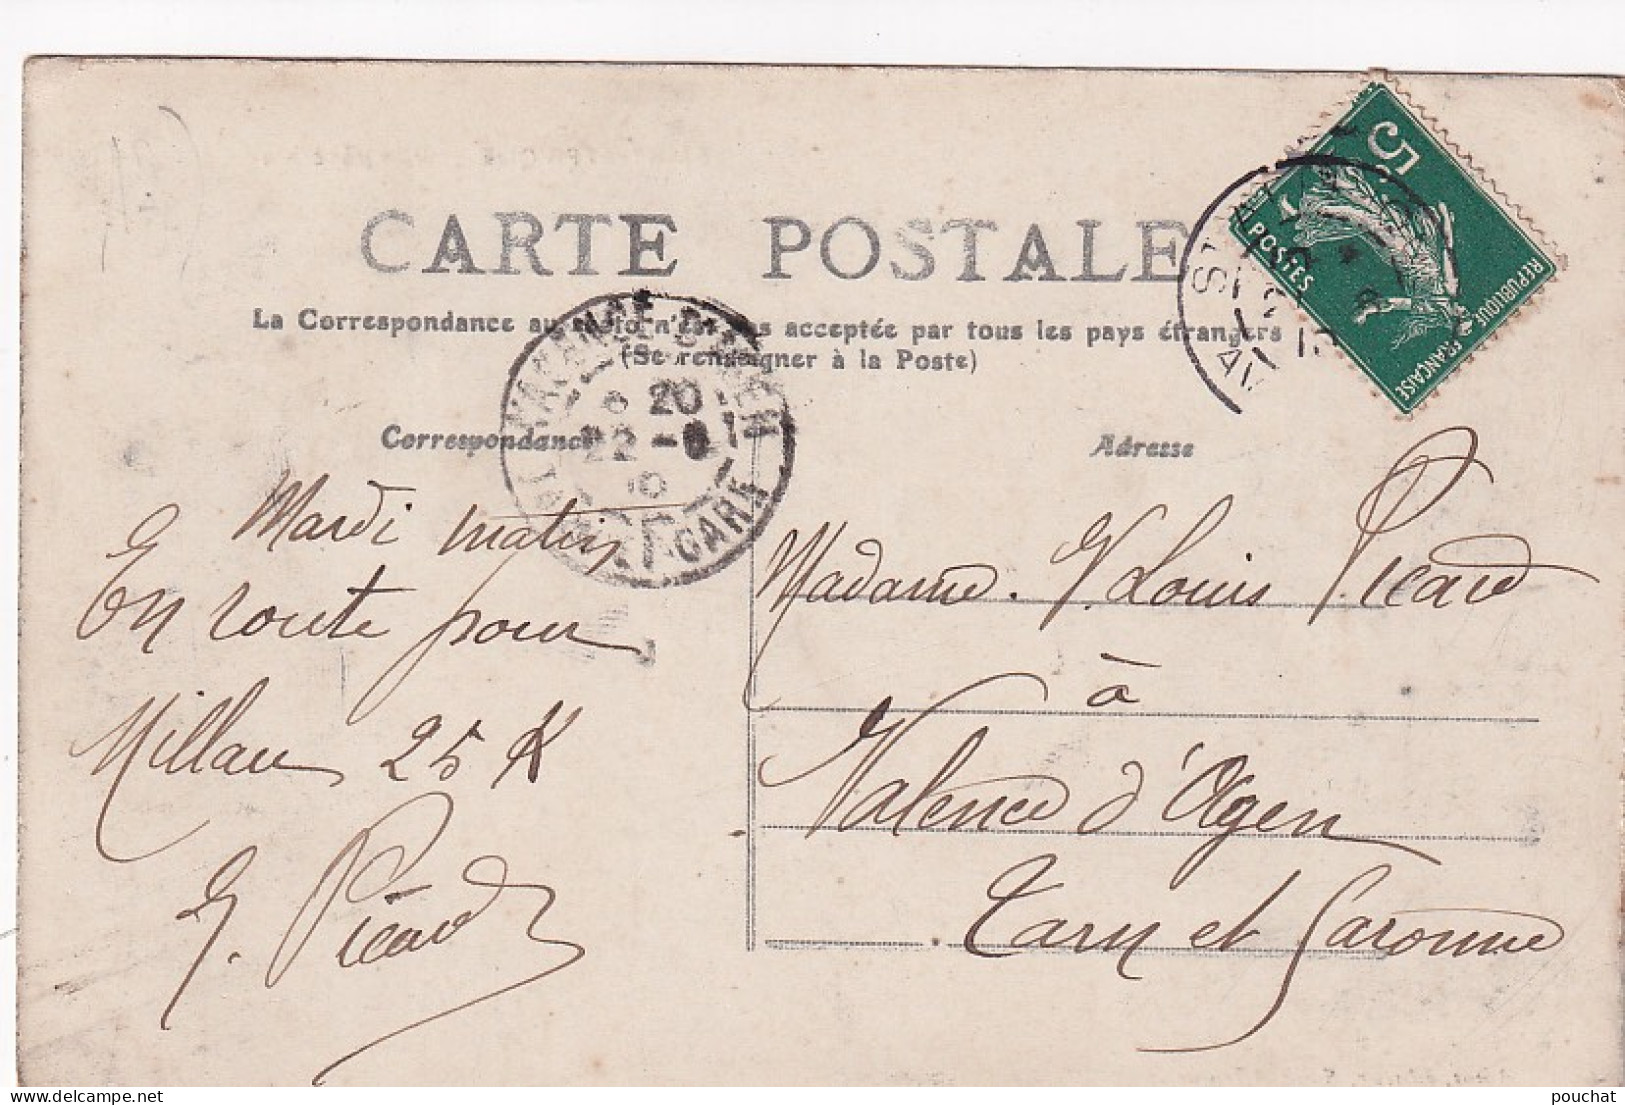 CARTE POSTALE
La Correspondance au recto n'est pas acceptée par tous les pays étrangers
(Se renseigner à la Poste)
Correspondance
Adresse
5
POSTES
REPUBLIQUE FRANÇAISE
VALENCE D'AGEN
20
22 - 8
10
TARN & GARNE
Mardi matin
En route pour
Millau 25 K
Picard
Madame Louis Picard
à
Valence d'Agen
Tarn et Garonne
pouchat
delcampe.net